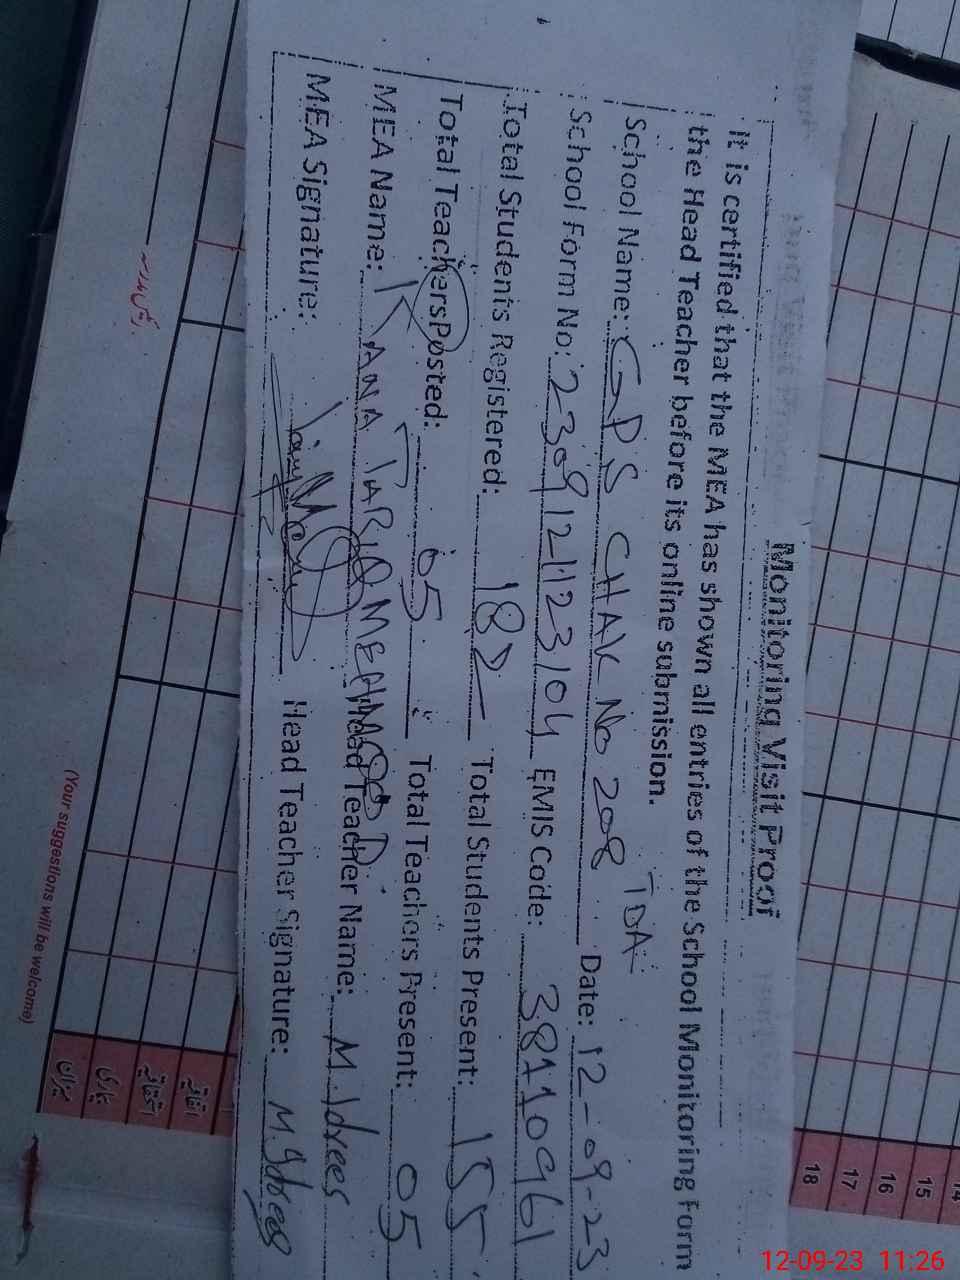 Monitoring Visit Proof
It is certified that the MEA has shown all entries of the School Monitoring Form
the Head Teacher before its online submission.
School Name: GPS CHAK No 208 TDA Date: 12-09-23
School Form No: 2309121123104 EMIS Code: 38110961
Total Students Registered: 182 Total Students Present: 155
Total Teachers Posted: 05 Total Teachers Present: 05
MEA Name: RANA TARIQ MEHMOOD Head Teacher Name: M. Idrees
MEA Signature: Head Teacher Signature: M. Idrees
14
15
16
17
18
(Your suggestions will be welcome)
اتفاقیہ
استحقاقیہ
بیماری
میزان
12-09-23 11:26